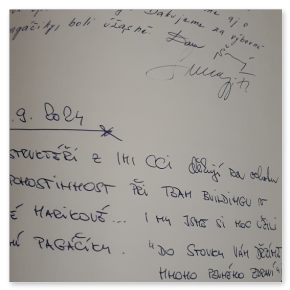 Děkujeme za výborné
pagáčiky, boli úžasné.
.9. 2024
STRUKTÉŘI Z IHI CCI děkují za
POHOSTINNOST PŘI TEAM BUILDINGU
É MAŘÍKOVÉ... I MY JSME SI MOC UŽILI
NÍ PAGÁČÍKY. "DO STOVKY VÁM
MNOHO PEVNÉHO ZDRAVÍ"